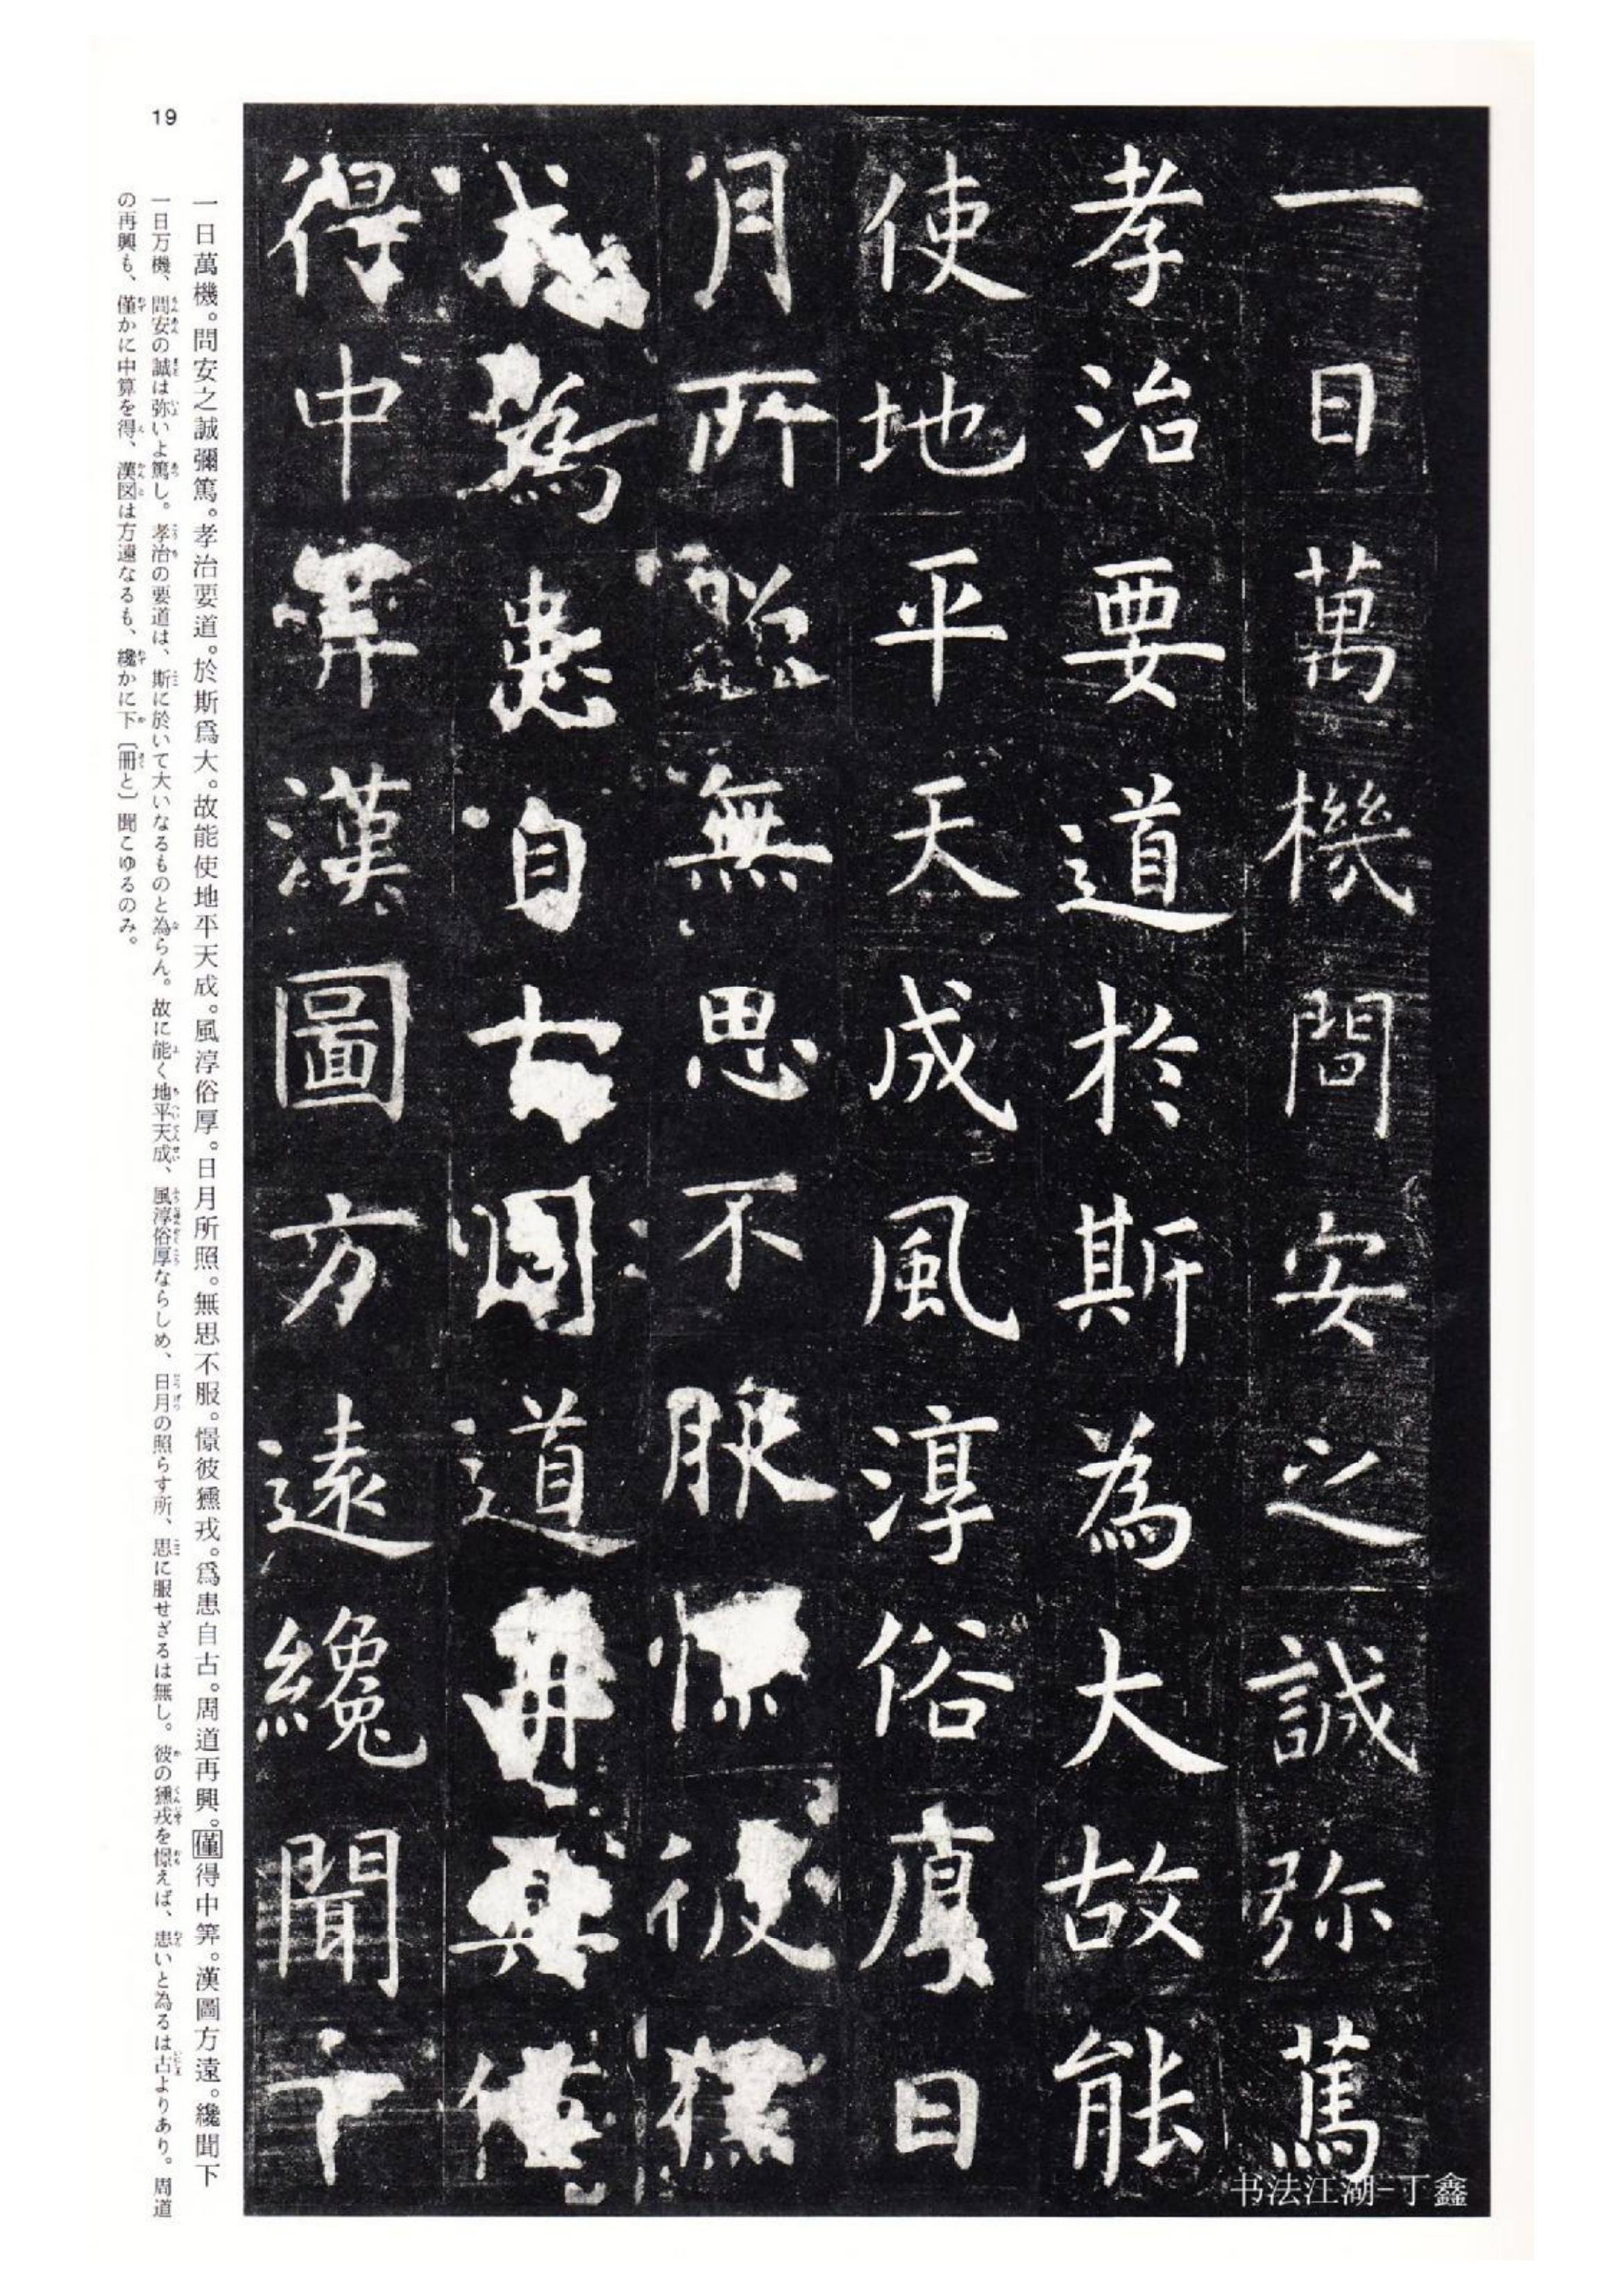 一日萬機問安之誠弥篤
孝治要道於斯為大故能
使地平天成風淳俗厚日
月所照無思不服憬彼獯
戎為患自古周道再興僅
得中筭漢圖方遠纔聞下
一日萬機。問安之誠彌篤。孝治要道。於斯爲大。故能使地平天成。風淳俗厚。日月所照。無思不服。憬彼獯戎。爲患自古。周道再興。僅得中筭。漢圖方遠。纔聞下
一日万機、問安の誠は弥いよ篤し。孝治の要道は、斯に於いて大いなるものと為らん。故に能く地平天成、風淳俗厚ならしめ、日月の照らす所、思に服せざるは無し。彼の獯戎を憬えば、患いと為るは古よりあり。周道
の再興も、僅かに中算を得、漢図は方遠なるも、纔かに下〔冊と〕聞こゆるのみ。
19
书法江湖-丁鑫